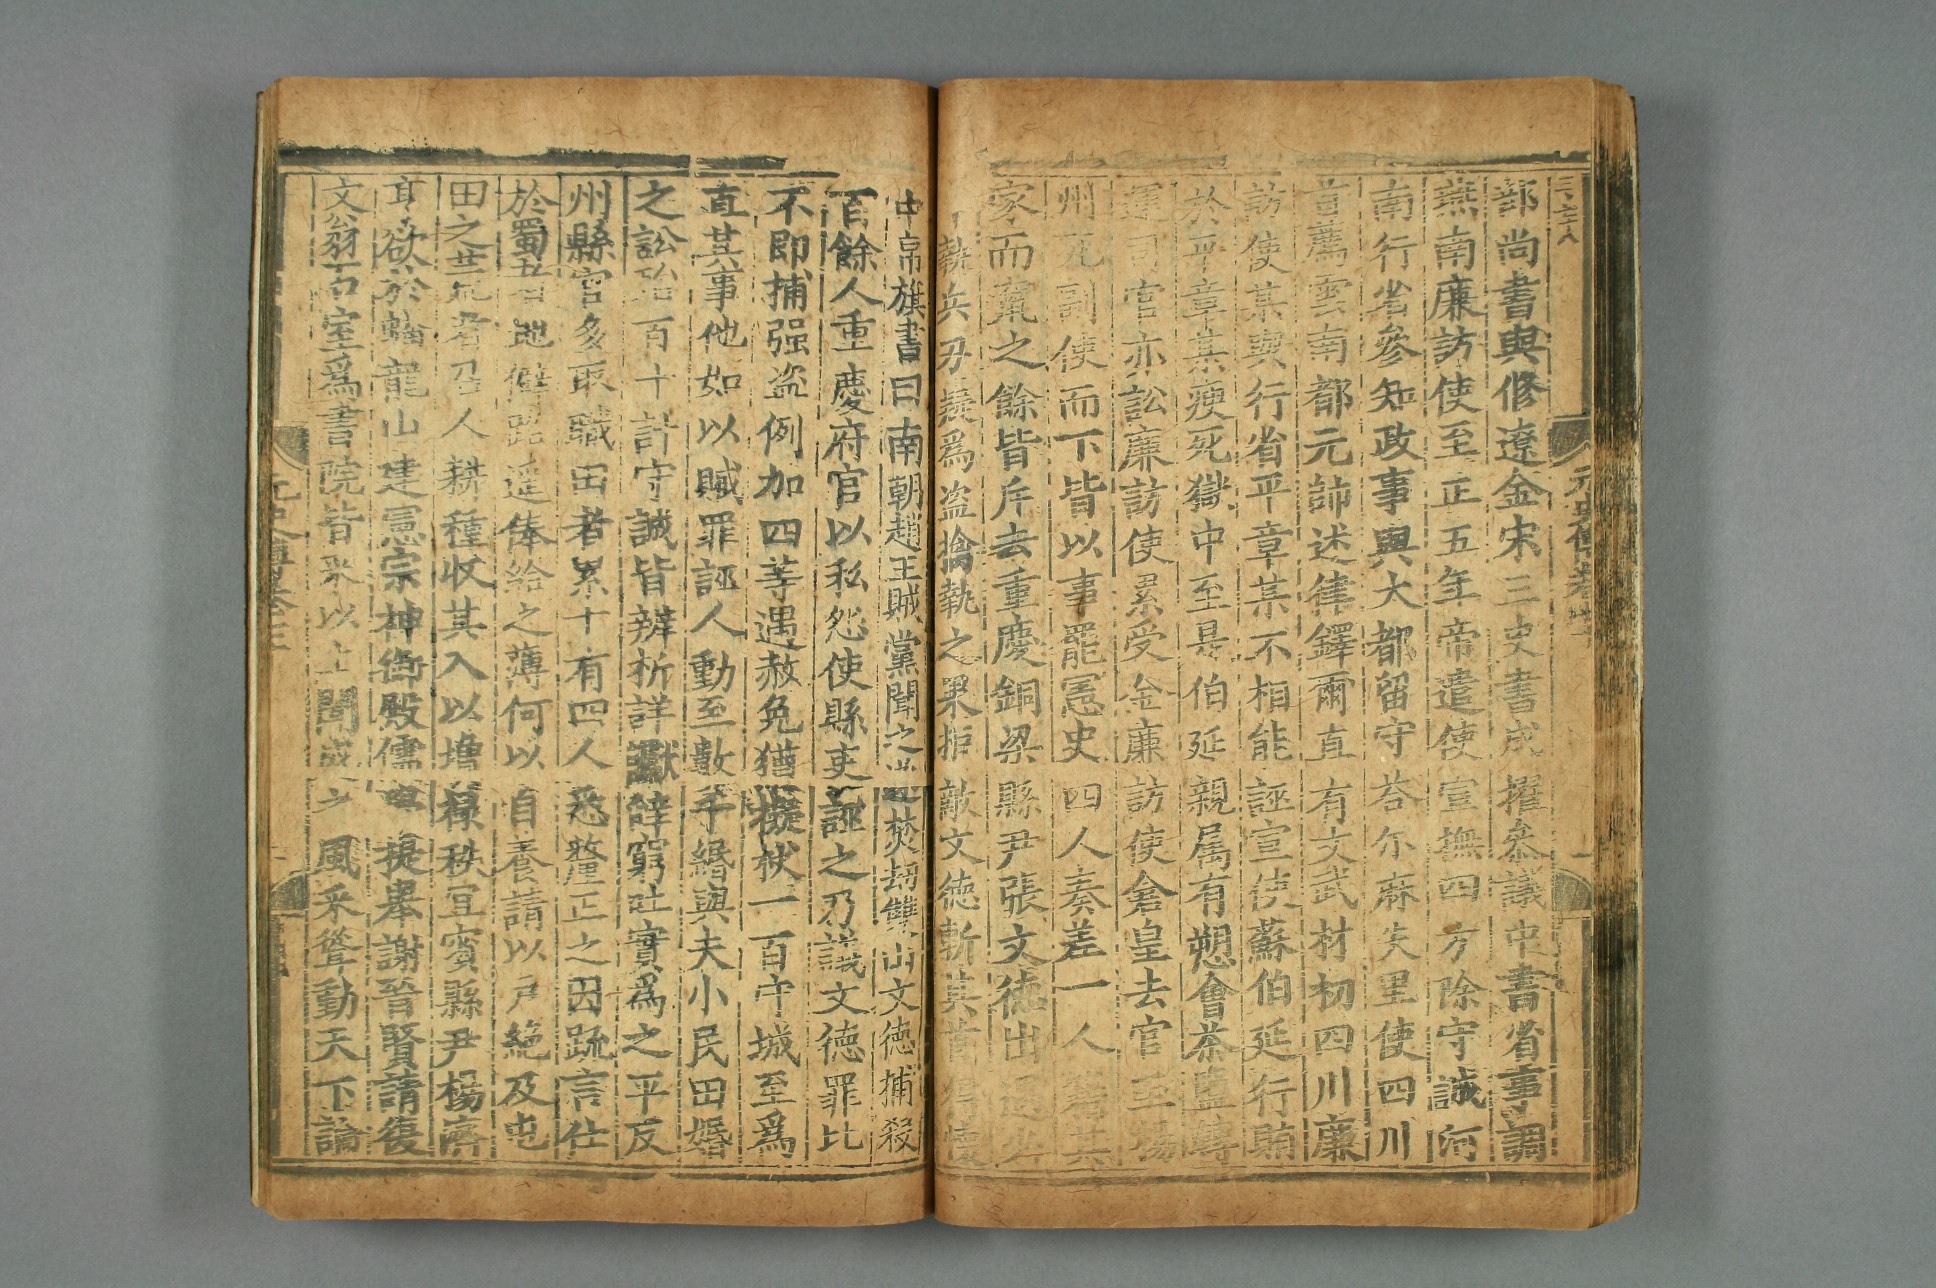 部尚書與修遼金宋三史書成擢叅議中書省事調
燕南廉訪使至正五年帝遣使宣撫四方除守誠河
南行省參知政事與大都留守荅尔麻失里使四川
首薦雲南都元帥述律鐸爾直有文武材初四川廉
訪使某與行省平章某不相能誣宣使蘇伯延行賄
於平章某瘐死獄中至是伯延親属有愬會茶鹽轉
運司官亦訟廉訪使累受金廉訪使倉皇去官至揚
州死副使而下皆以事罷憲史四人奏差一人籍其
家而竄之餘皆斥去重慶銅梁縣尹張文德出遇少
執兵刃疑爲盗擒執之果拒敵文德斬其首得懷
中帛旗書曰南朝趙王賊黨聞之 焚劫雙山文德捕殺
百餘人重慶府官以私怨使縣吏誣之乃議文德罪比
不即捕强盗例加四等遇赦免猶擬杖一百守城至爲
直其事他如以贓罪誣人動至數千緡與夫小民田婚
之訟殆百十計守誠皆辨析詳讞辭窮吐實爲之平反
州縣官多取職田者累十有四人悉釐正之因疏言仕
於蜀者地僻路遥俸給之薄何以自養請以戶絶及屯
田之荒者召人耕種收其入以增祿秩宜賓縣尹楊濟
亨欲於蟠龍山建憲宗神御殿儒學提舉謝晉賢請復
文翁石室爲書院皆采以上聞成之風采聳動天下論